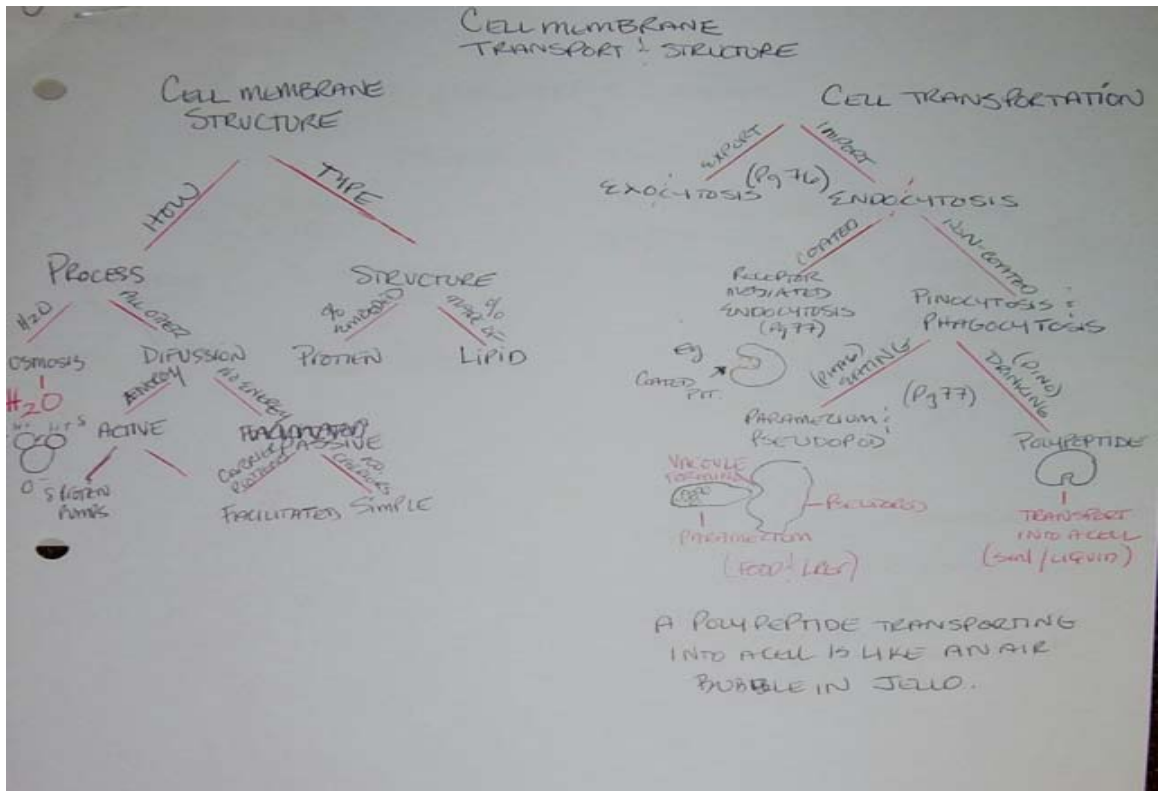 CELL MEMBRANE
TRANSPORT & STRUCTURE
CELL MEMBRANE
STRUCTURE
HOW
TYPE
PROCESS
STRUCTURE
H2O
ALL OTHER
% EMBEDDED
% MADE OF
OSMOSIS
DIFUSSION
PROTIEN
LIPID
H2O
ENERGY
NO ENERGY
ACTIVE
PASSIVE
CARRIER
PROTIENS
PROTEIN
PUMPS
FACILITATED
SIMPLE
CELL TRANSPORTATION
EXPORT
IMPORT
EXOCYTOSIS
(Pg 76)
ENDOCYTOSIS
COATED
NON-COATED
RECEPTOR
MEDIATED
ENDOCYTOSIS
(Pg 77)
PINOCYTOSIS &
PHAGOCYTOSIS
Eg
COATED
PIT.
(PHAG)
EATING
(Pg 77)
(PINO)
DRINKING
PARAMEZIUM &
PSEUDOPOD
POLYPEPTIDE
VACUOLE
FORMING
PSEUDOPOD
PARAMEZIUM
TRANSPORT
INTO A CELL
(SMALL/LIQUID)
A POLYPEPTIDE TRANSPORTING
INTO A CELL IS LIKE AN AIR
BUBBLE IN JELLO.